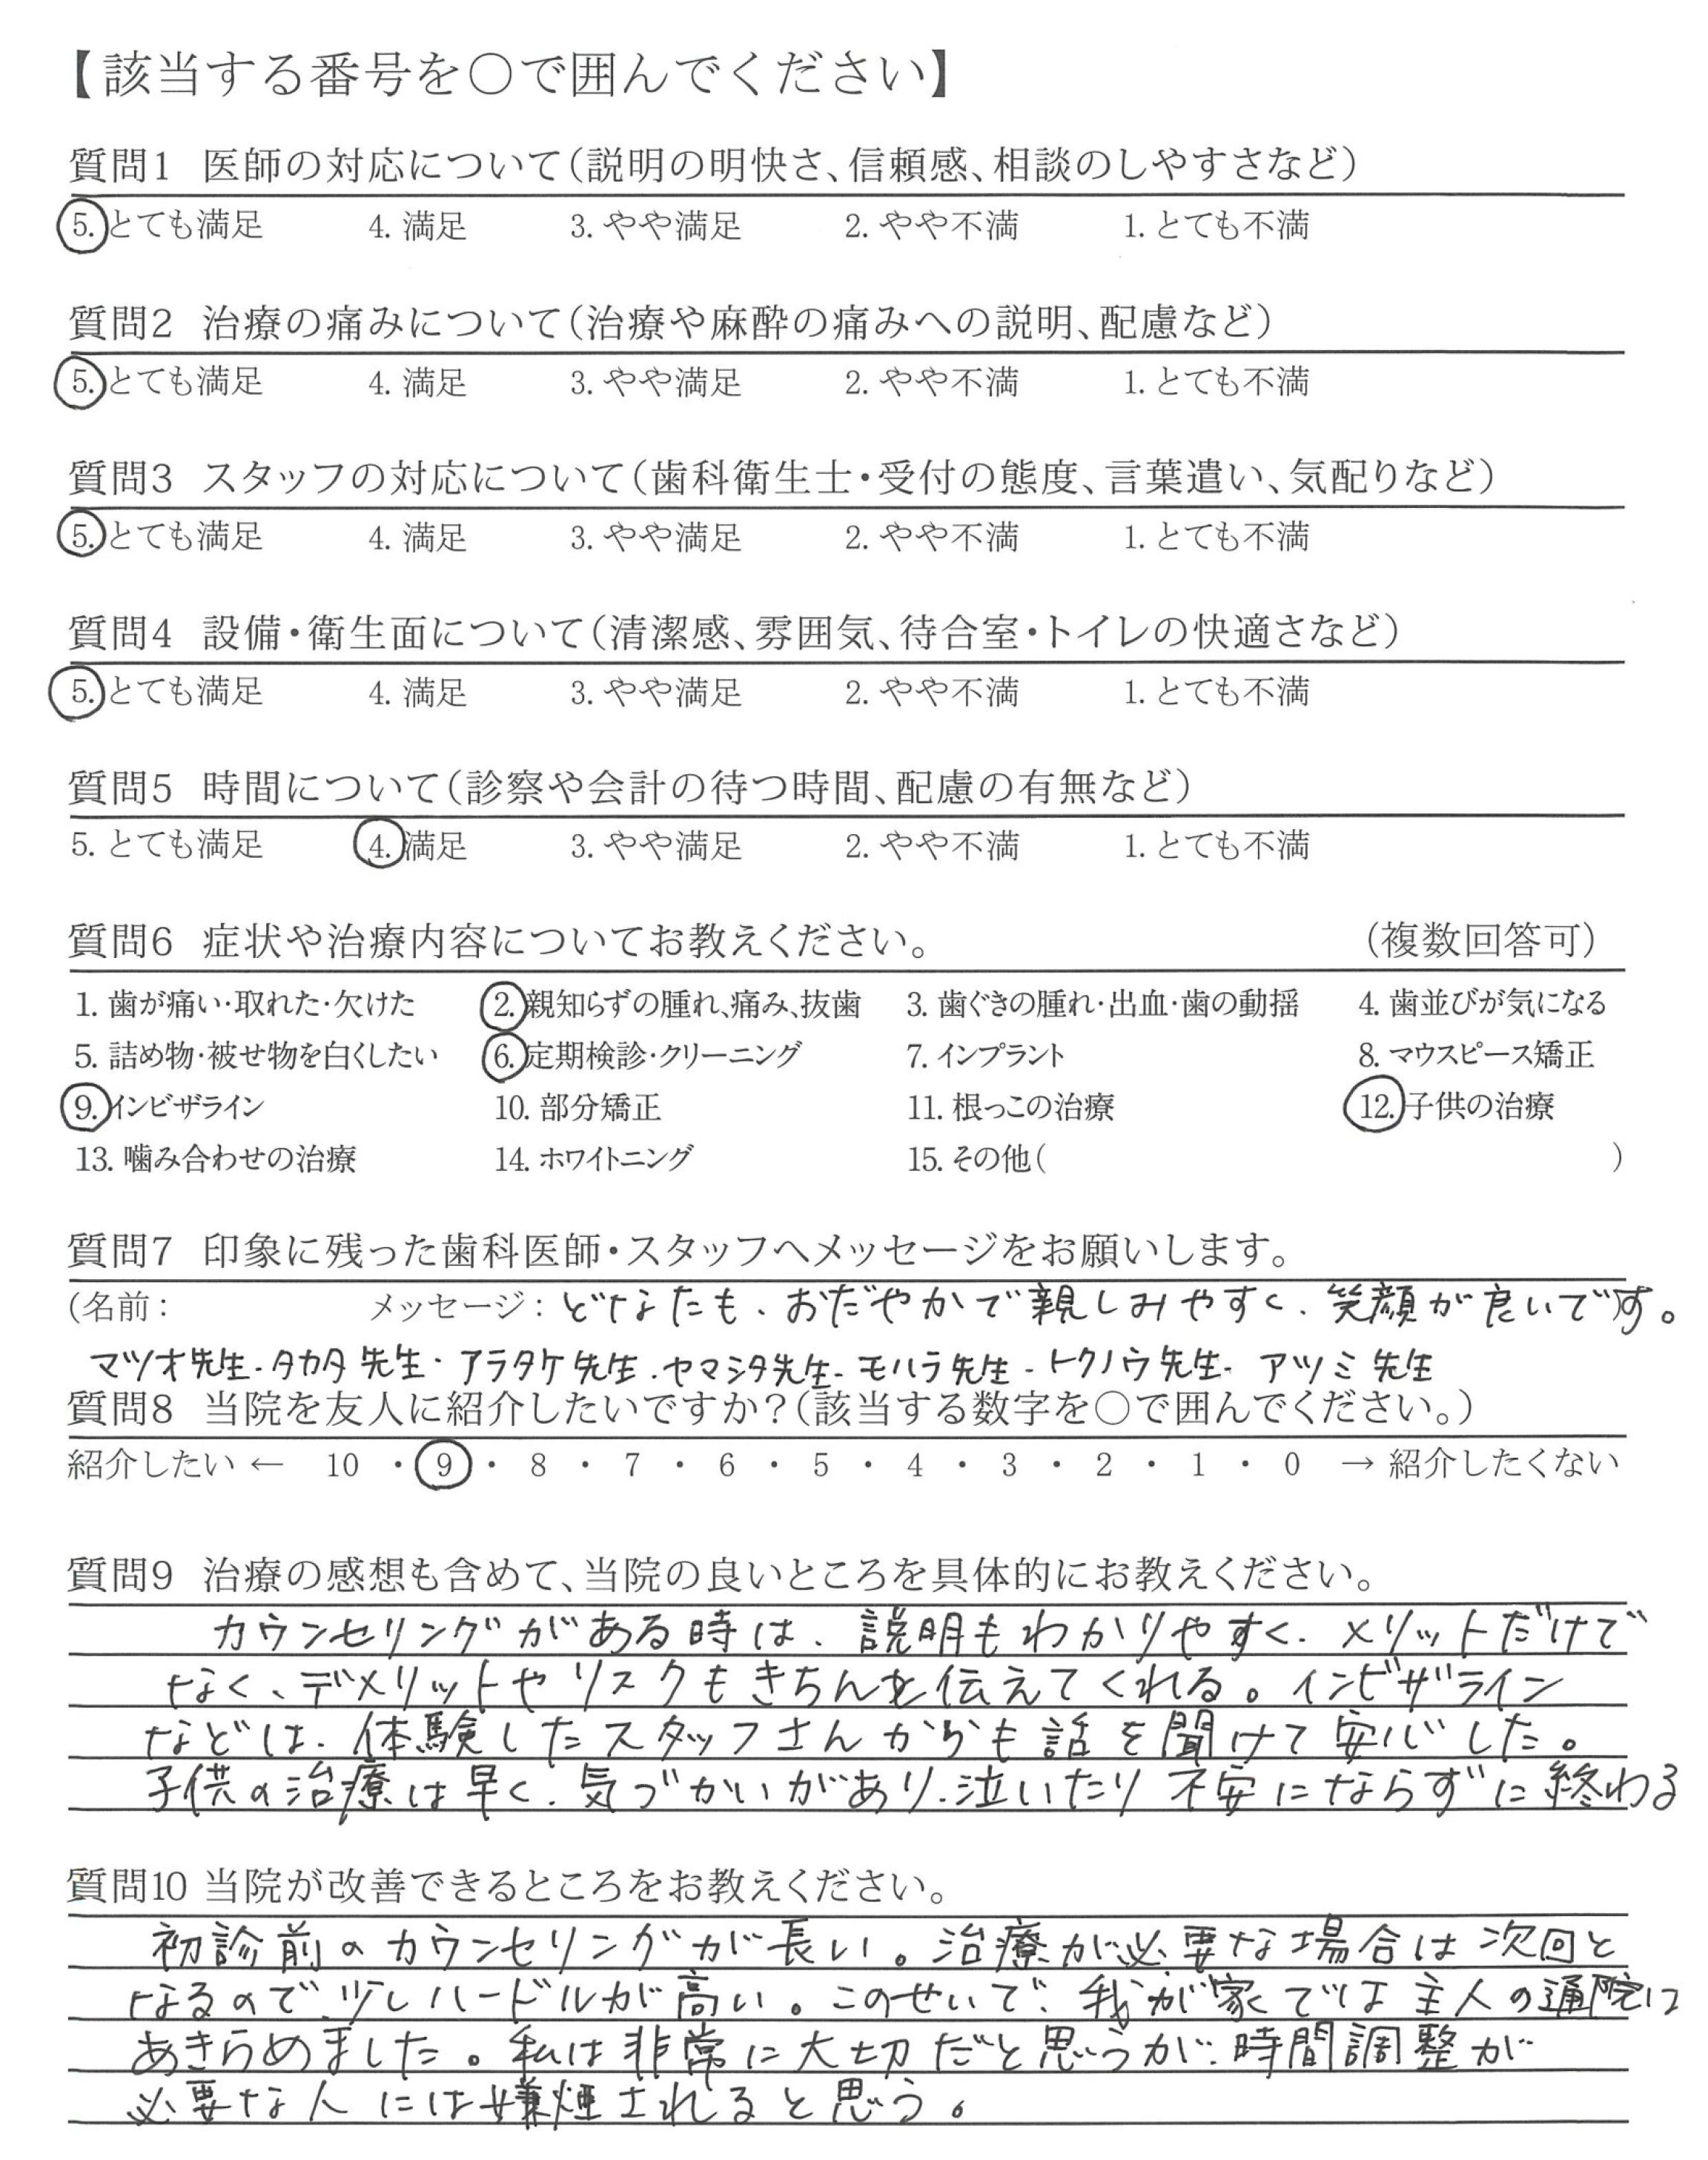 【該当する番号を〇で囲んでください】
質問1 医師の対応について(説明の明快さ、信頼感、相談のしやすさなど)
5. とても満足 4. 満足 3. やや満足 2. やや不満 1. とても不満
質問2 治療の痛みについて(治療や麻酔の痛みへの説明、配慮など)
5. とても満足 4. 満足 3. やや満足 2. やや不満 1. とても不満
質問3 スタッフの対応について(歯科衛生士・受付の態度、言葉遣い、気配りなど)
5. とても満足 4. 満足 3. やや満足 2. やや不満 1. とても不満
質問4 設備・衛生面について(清潔感、雰囲気、待合室・トイレの快適さなど)
5. とても満足 4. 満足 3. やや満足 2. やや不満 1. とても不満
質問5 時間について(診察や会計の待つ時間、配慮の有無など)
5. とても満足 4. 満足 3. やや満足 2. やや不満 1. とても不満
質問6 症状や治療内容についてお教えください。 (複数回答可)
1. 歯が痛い・取れた・欠けた 2. 親知らずの腫れ、痛み、抜歯 3. 歯ぐきの腫れ・出血・歯の動揺 4. 歯並びが気になる
5. 詰め物・被せ物を白くしたい 6. 定期検診・クリーニング 7. インプラント 8. マウスピース矯正
9. インビザライン 10. 部分矯正 11. 根っこの治療 12. 子供の治療
13. 噛み合わせの治療 14. ホワイトニング 15. その他( )
質問7 印象に残った歯科医師・スタッフへメッセージをお願いします。
(名前: メッセージ: どなたも、おだやかで親しみやすく、笑顔が良いです。
マツオ先生・タカタ先生・アラタケ先生・ヤマシタ先生・モハラ先生・トクノウ先生・アツミ先生
質問8 当院を友人に紹介したいですか?(該当する数字を〇で囲んでください。)
紹介したい ← 10 ・ 9 ・ 8 ・ 7 ・ 6 ・ 5 ・ 4 ・ 3 ・ 2 ・ 1 ・ 0 → 紹介したくない
質問9 治療の感想も含めて、当院の良いところを具体的にお教えください。
カウンセリングがある時は、説明もわかりやすく、メリットだけで
なく、デメリットやリスクもきちんと伝えてくれる。インビザライン
などは、体験したスタッフさんからも話を聞けて安心した。
子供の治療は早く、気づかいがあり、泣いたり不安にならずに終わる
質問10 当院が改善できるところをお教えください。
初診前のカウンセリングが長い。治療が必要な場合は次回と
なるので、少しハードルが高い。このせいで、我が家では主人の通院は
あきらめました。私は非常に大切だと思うが、時間調整が
必要な人には嫌煙されると思う。